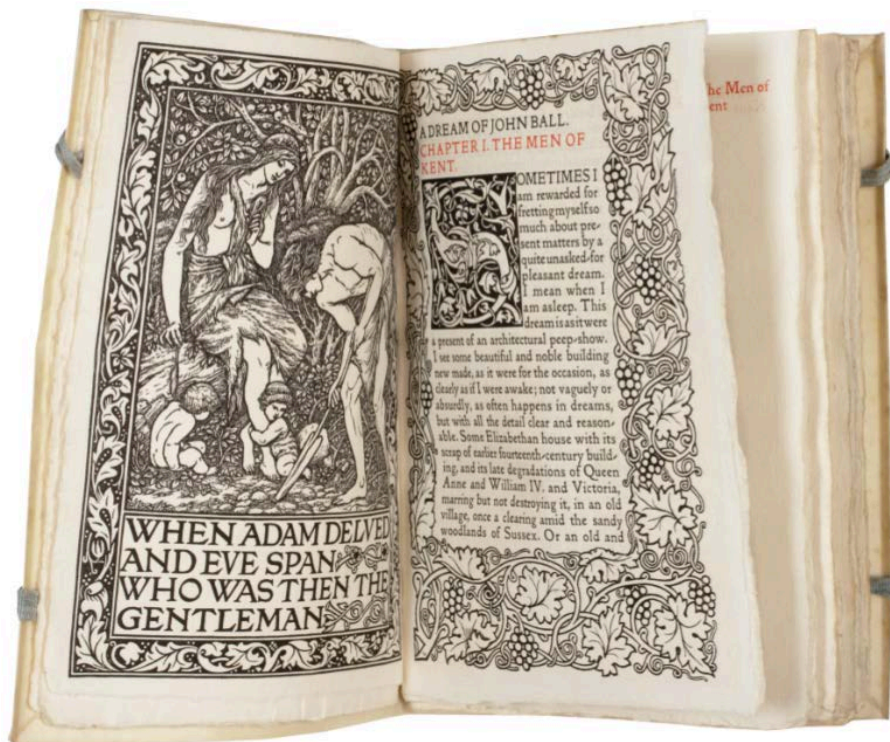 WHEN ADAM DELVED
AND EVE SPAN
WHO WAS THEN THE
GENTLEMAN
A DREAM OF JOHN BALL.
CHAPTER I. THE MEN OF
KENT.
SOMETIMES I
am rewarded for
fretting myself so
much about pre-
sent matters by a
quite unasked-for
pleasant dream.
I mean when I
am asleep. This
dream is as it were
a present of an architectural peep-show.
I see some beautiful and noble building
new made, as it were for the occasion, as
clearly as if I were awake; not vaguely or
absurdly, as often happens in dreams,
but with all the detail clear and reason-
able. Some Elizabethan house with its
scrap of earlier fourteenth-century build-
ing, and its late degradations of Queen
Anne and William IV. and Victoria,
marring but not destroying it, in an old
village, once a clearing amid the sandy
woodlands of Sussex. Or an old and
he Men of
ent